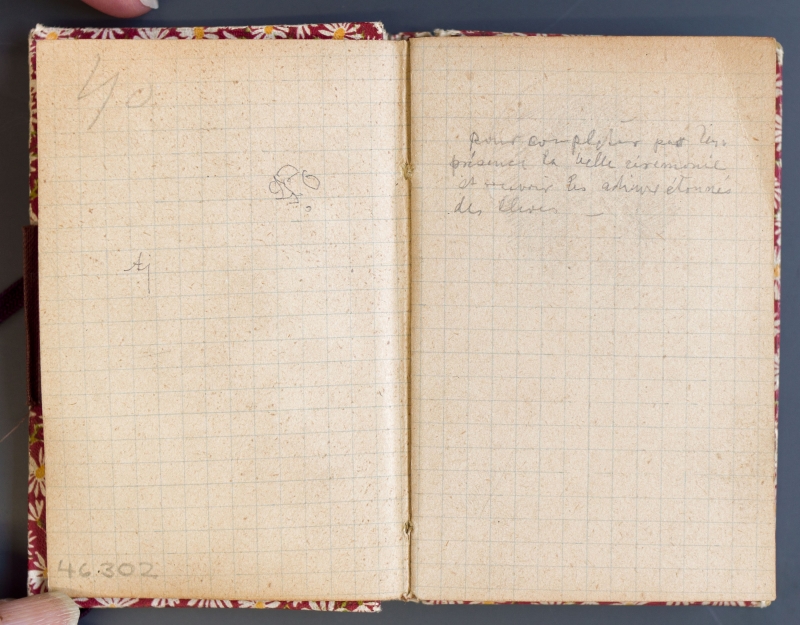 40
Aj
46302
pour compléter par leur
présence la belle cérémonie
et recevoir les adieux étonnés
des